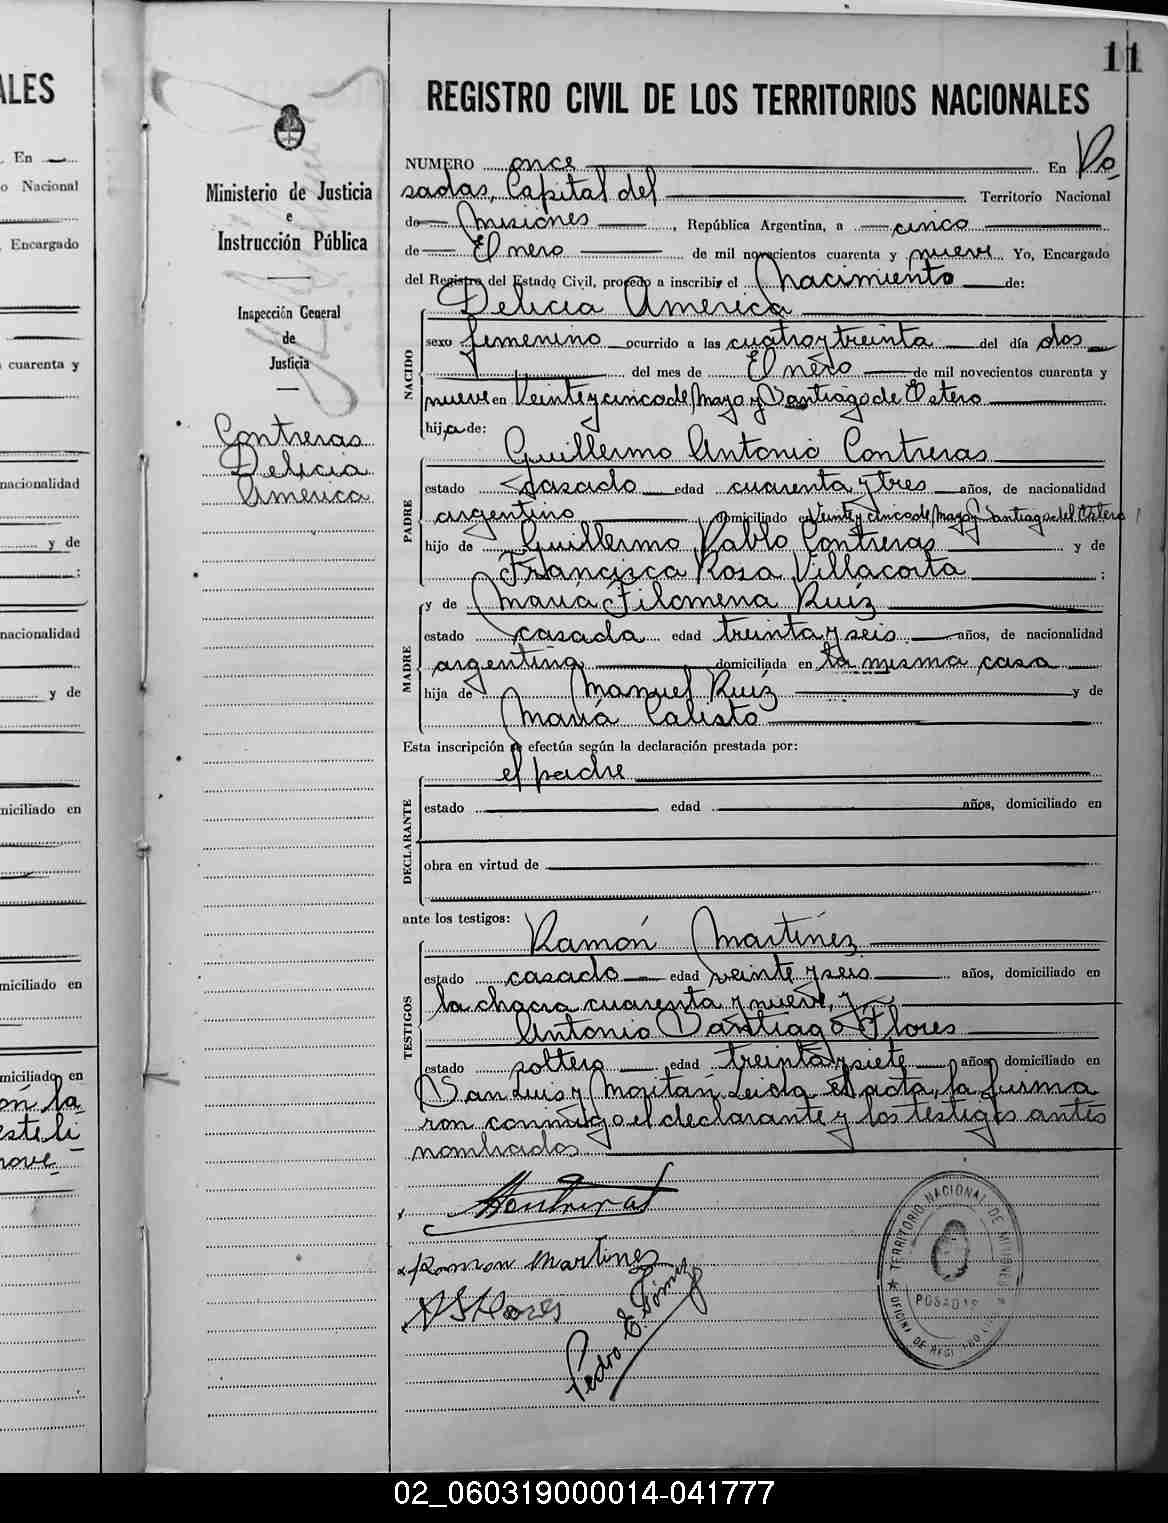 11
ALES
REGISTRO CIVIL DE LOS TERRITORIOS NACIONALES
Ministerio de Justicia
e
Instrucción Pública
Inspección General
de
Justicia
Contreras
Delicia
América
NUMERO once En Po
sadas, Capital del Territorio Nacional
de Misiones, República Argentina, a cinco
de Enero de mil novecientos cuarenta y nueve Yo, Encargado
del Registro del Estado Civil, procedo a inscribir el Nacimiento de:
Delicia América
NACIDO
sexo femenino ocurrido a las cuatro y treinta del día dos
del mes de Enero de mil novecientos cuarenta y
nueve en Veinte y cinco de Mayo y Santiago de Estero
hija de:
Guillermo Antonio Contreras
PADRE
estado casado edad cuarenta y tres años, de nacionalidad
argentino domiciliado en Veinte y cinco de Mayo y Santiago del Estero
hijo de Guillermo Pablo Contreras y de
Francisca Rosa Villacorta :
y de María Filomena Ruíz
MADRE
estado casada edad treinta y seis años, de nacionalidad
argentina domiciliada en la misma casa
hija de Manuel Ruíz y de
María Calisto
Esta inscripción se efectúa según la declaración prestada por:
el padre
DECLARANTE
estado edad años, domiciliado en
obra en virtud de
ante los testigos:
Ramón Martínez
TESTIGOS
estado casado edad veinte y seis años, domiciliado en
la chacra cuarenta y nueve, y
Antonio Santiago Flores
estado soltero edad treinta y siete años, domiciliado en
San Luis y Leida el acta, la firma
ron conmigo el declarante y los testigos antes
nombrados
Ramon Martinez
A S Flores
Pedro E. Gómez
TERRITORIO NACIONAL DE MISIONES
POSADAS
OFICINA DE REGISTRO CIVIL
En
o Nacional
Encargado
cuarenta y
nacionalidad
y de
:
nacionalidad
y de
miciliado en
miciliado en
miciliado en
02_060319000014-041777